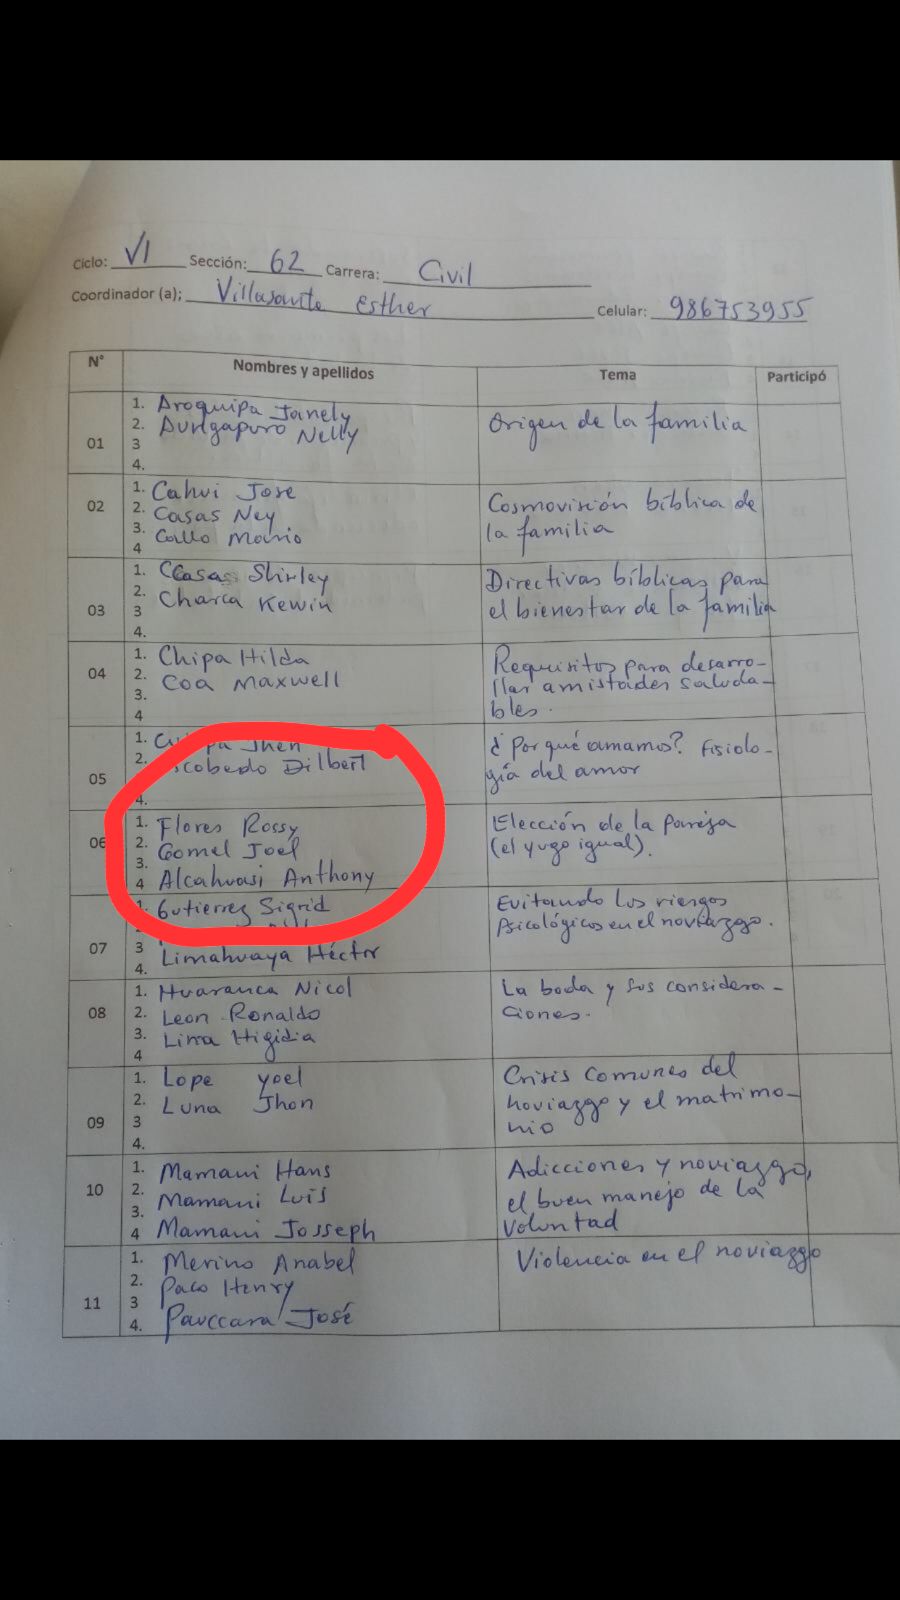 Ciclo: VI Sección: 62 Carrera: Civil
Coordinador (a); Villasante Esther Celular: 986753955
N° Nombres y apellidos Tema Participó
01
1. Aroquipa Janely
2. Auligapuro Nelly
3
4.
Origen de la familia
02
1. Cahui Jose
2. Casas Ney
3. Callo Mario
4
Cosmovisión bíblica de
la familia
03
1. CCasas Shirley
2. Charca Kewin
3
4.
Directivas bíblicas para
el bienestar de la familia
04
1. Chipa Hilda
2. Coa Maxwell
3.
4
Requisitos para desarro-
llar amistades saluda-
bles.
05
1. Jhen
2. Escobedo Dilbert
4.
¿Por qué amamos? Fisiolo-
gía del amor
06
1. Flores Rossy
2. Gomel Joel
3.
4 Alcahuasi Anthony
Elección de la pareja
(el yugo igual).
07
1. Gutierrez Sigrid
3 Limahuaya Héctor
4.
Evitando los riesgos
Psicológicos en el noviazgo.
08
1. Huaranca Nicol
2. Leon Ronaldo
3. Lima Higidia
4
La boda y sus considera-
ciones.
09
1. Lope Yoel
2. Luna Jhon
3
4.
Crisis comunes del
noviazgo y el matrimo-
nio
10
1. Mamani Hans
2. Mamani Luis
3.
4 Mamani Josseph
Adicciones y noviazgo,
el buen manejo de la
voluntad
11
1. Merino Anabel
2. Paco Henry
3
4. Pauccara José
Violencia en el noviazgo